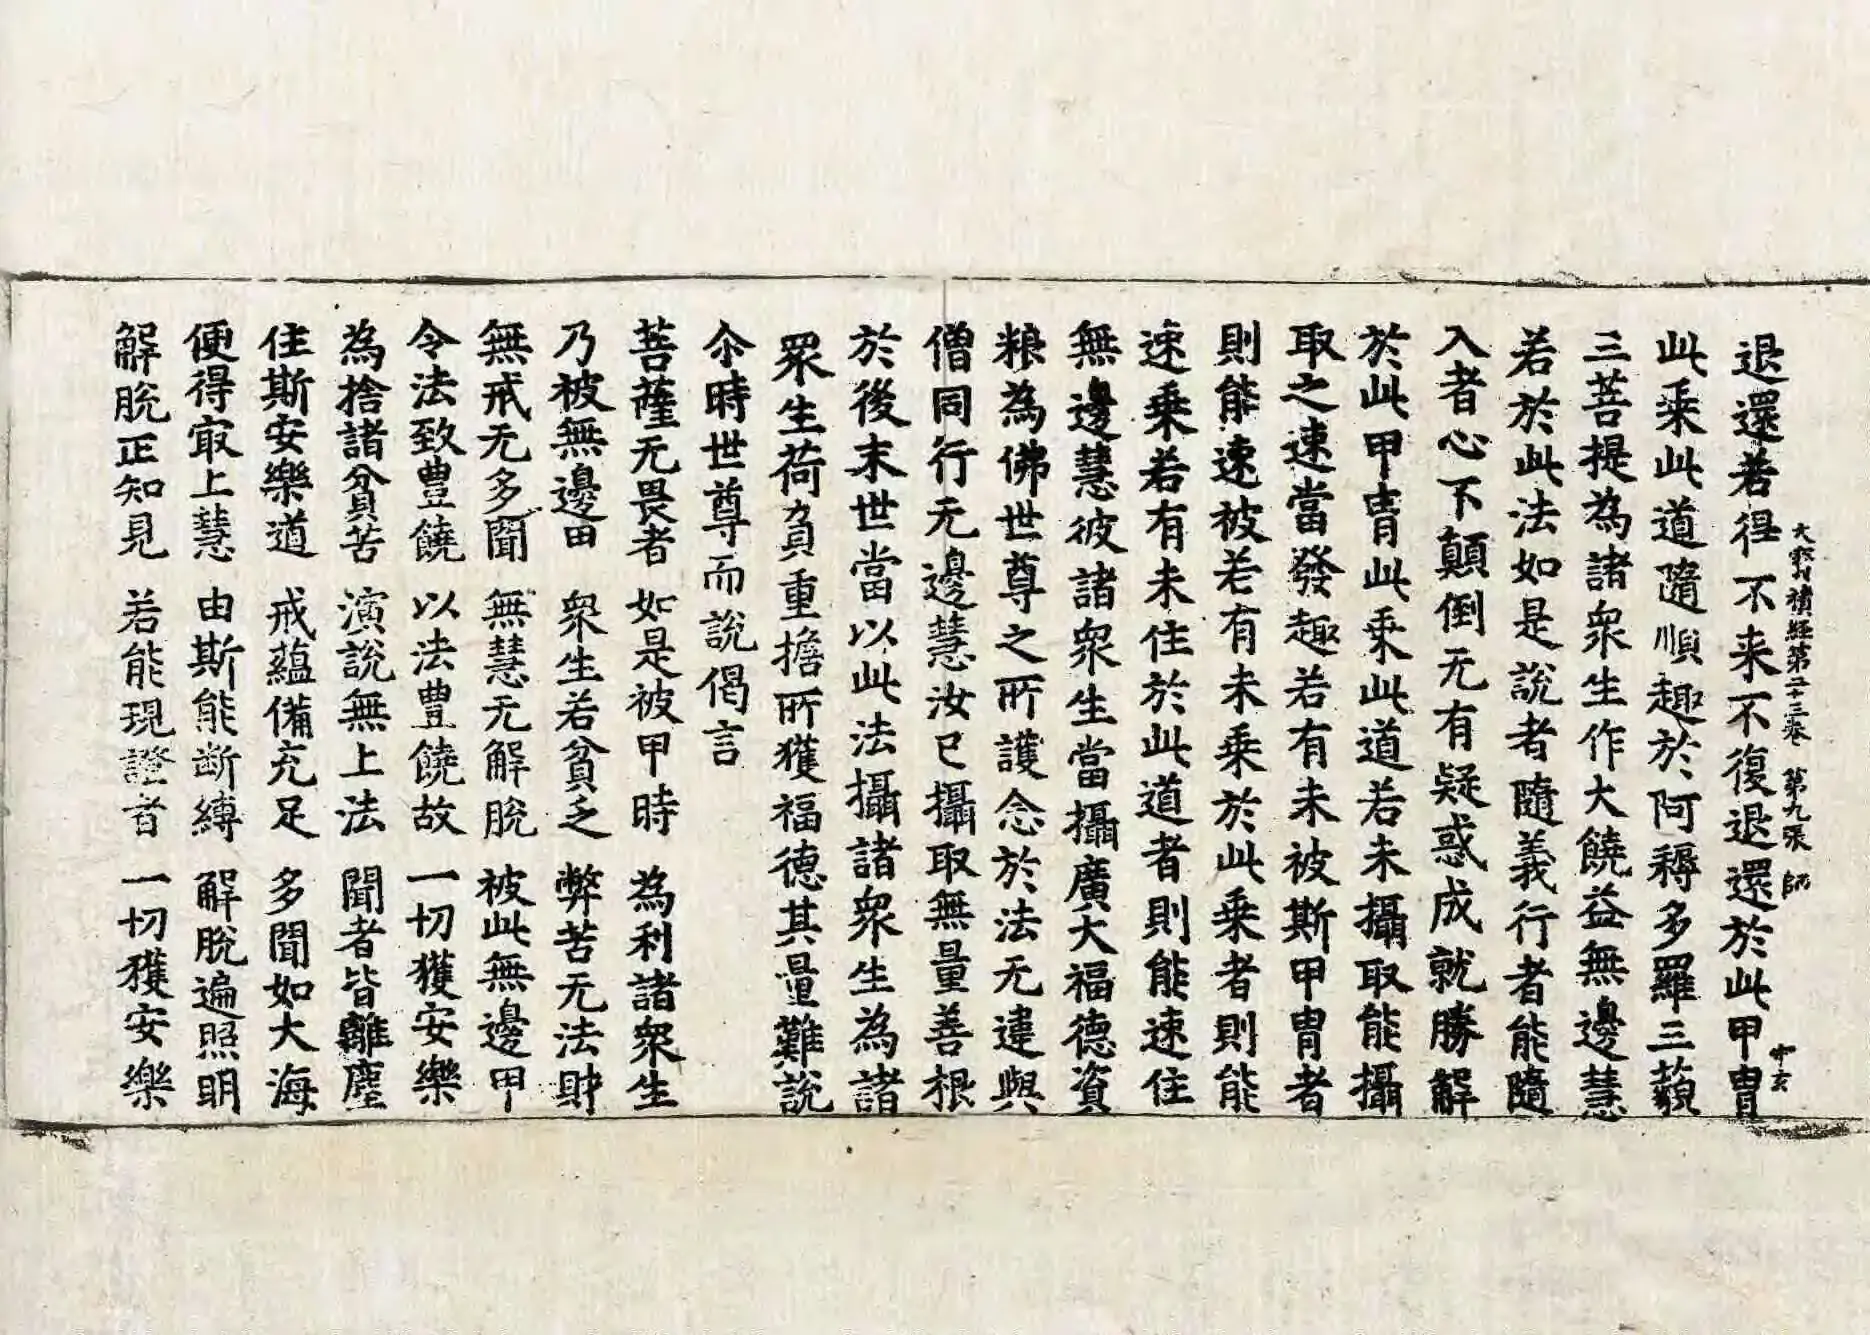 退還若徃不来不復退還於此甲冑
大寳積經第二十三卷 第九張 師
此乘此道隨順趣於阿耨多羅三藐
三菩提為諸衆生作大饒益無邊慧
若於此法如是說者隨義行者能隨
入者心不顛倒无有疑惑成就勝解
於此甲冑此乘此道若未攝取能攝
取之速當發趣若有未被斯甲冑者
則能速被若有未乘於此乘者則能
速乘若有未住於此道者則能速住
無邊慧彼諸衆生當攝廣大福德資
粮為佛世尊之所護念於法无違與
僧同行无邊慧汝已攝取無量善根
於後末世當以此法攝諸衆生為諸
眾生荷負重擔所獲福德其量難說
尒時世尊而說偈言
菩薩无畏者 如是被甲時 為利諸衆生
乃被無邊甲 衆生若貧乏 弊苦无法財
無戒无多聞 無慧无解脫 被此無邊甲
令法致豊饒 以法豊饒故 一切獲安樂
為捨諸貧苦 演說無上法 聞者皆離塵
住斯安樂道 戒蘊備充足 多聞如大海
便得㝡上慧 由斯能断縛 解脫遍照明
解脫正知見 若能現證者 一切獲安樂